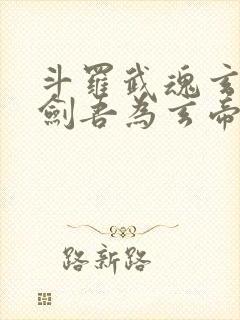 斗羅武魂玄
劍吾為玄帝
路新路